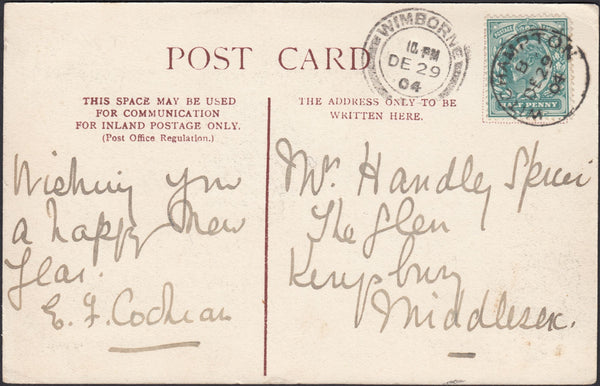 POST CARD
WIMBORNE
10. PM
DE 29
04
HALF PENNY
THIS SPACE MAY BE USED
FOR COMMUNICATION
FOR INLAND POSTAGE ONLY.
(Post Office Regulation.)
THE ADDRESS ONLY TO BE
WRITTEN HERE.
Wishing you
a happy New
Year.
E. F. Cochran
Mr Handley
The Glen
Middlesex.